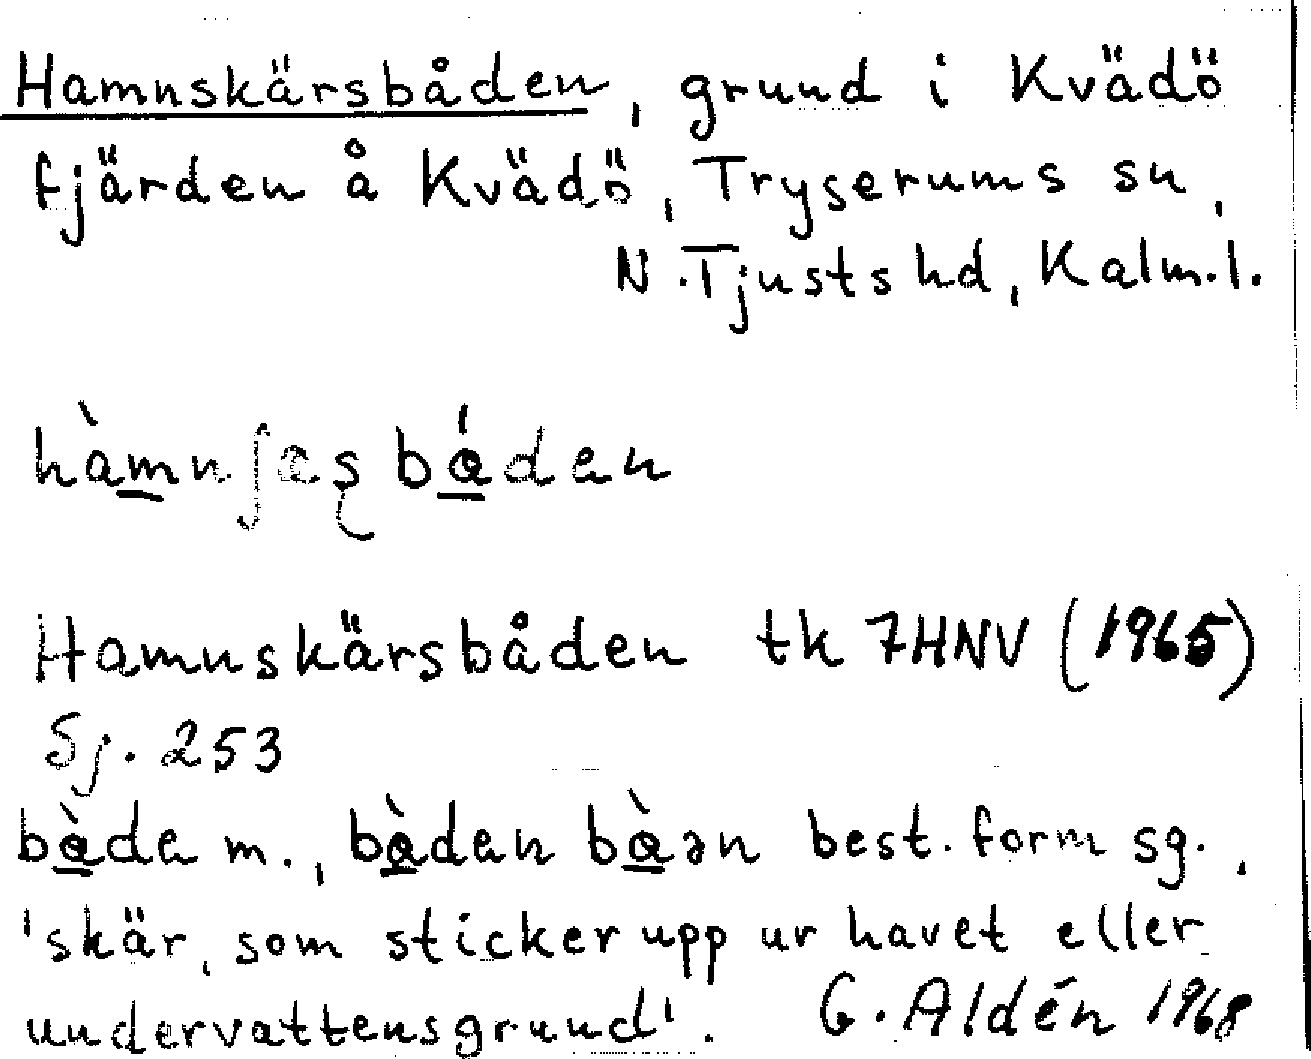 Hamnskärsbåden, grund i Kvädö
fjärden å Kvädö, Tryserums sn,
N. Tjusts hd, Kalm.l.
hàmnʃæʂbáden
Hamnskärsbåden tk 7HNV (1965)
Sj. 253
bàde m., bàden bàən best. form sg.,
'skär, som sticker upp ur havet eller
undervattensgrund'. G. Aldén 1968